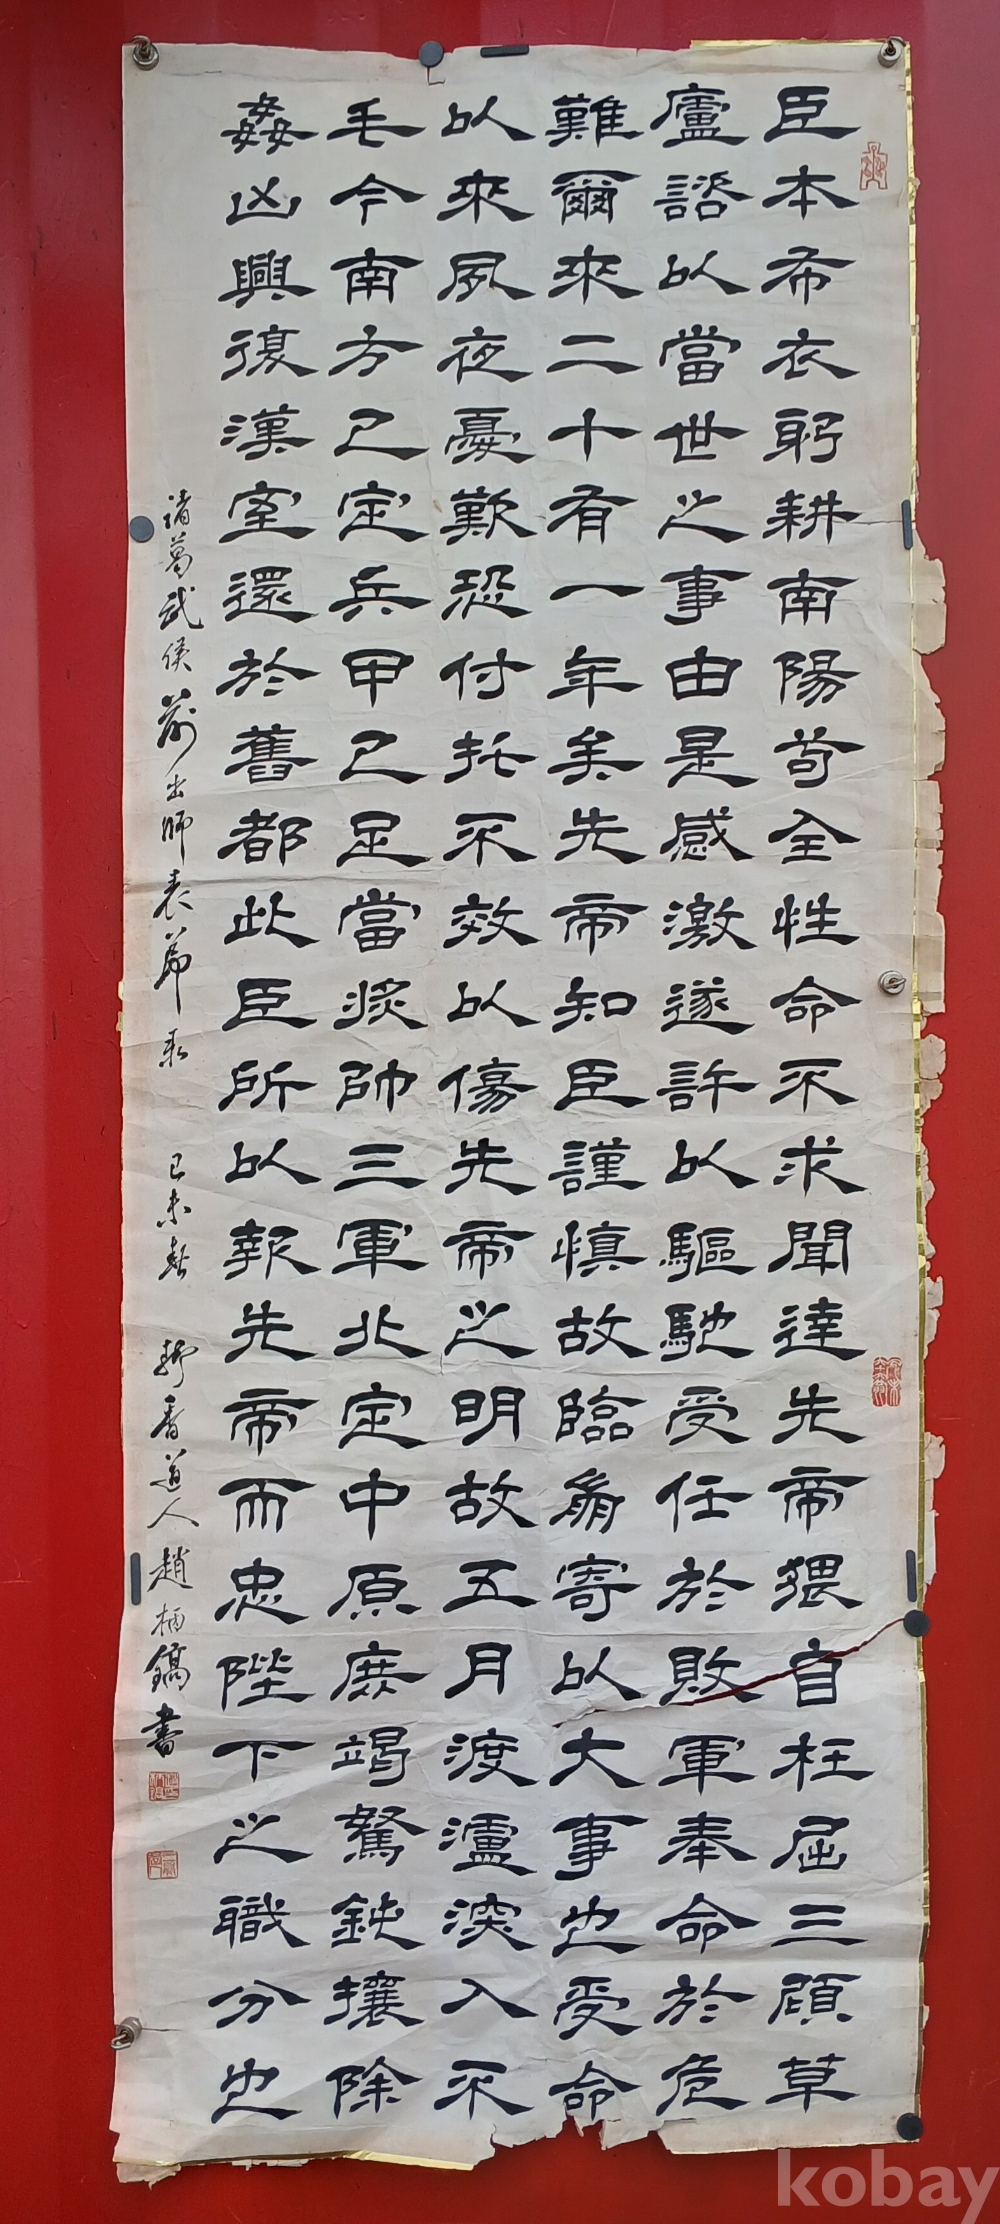 臣本布衣躬耕南陽苟全性命不求聞達先帝猥自枉屈三顧草
廬諮以當世之事由是感激遂許以驅馳受任於敗軍奉命於危
難爾來二十有一年矣先帝知臣謹慎故臨崩寄以大事也受命
以來夙夜憂歎恐付托不效以傷先帝之明故五月渡瀘深入不
毛今南方已定兵甲已足當奬帥三軍北定中原庶竭駑鈍攘除
姦凶興復漢室還於舊都此臣所以報先帝而忠陛下之職分也
諸葛武侯前出師表節录 己未春 香道人趙柄鎬書
kobay